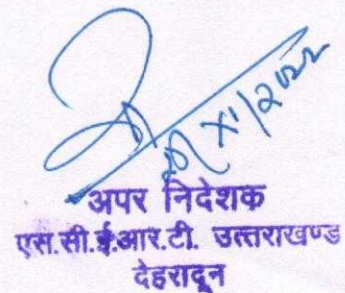 XI/2022
अपर निदेशक
एस.सी.ई.आर.टी. उत्तराखण्ड
देहरादून